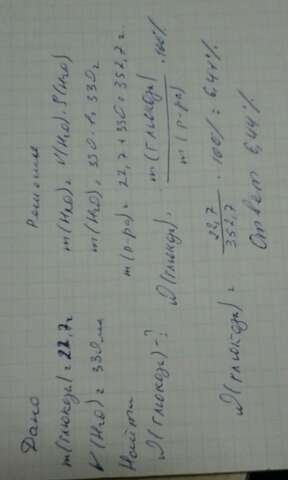 Дано
m(глюкоза) = 22,7г
V(H2O) = 330мл
Найти
ω(глюкоза) - ?
Решение
m(H2O) = V(H2O)·ρ(H2O)
m(H2O) = 330·1 = 330г
m(р-ра) = 22,7 + 330 = 352,7г.
ω(глюкоза) = m(глюкоза) / m(р-ра) ·100%
ω(глюкоза) = 22,7 / 352,7 · 100% = 6,44%
Ответ 6,44%